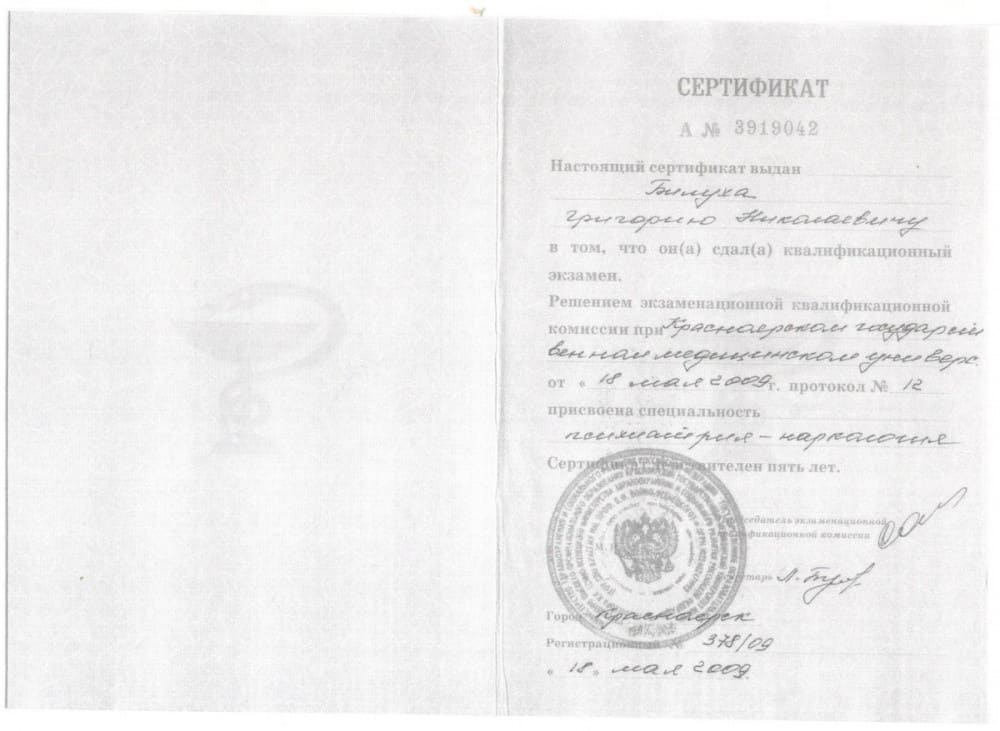 СЕРТИФИКАТ
А № 3919042
Настоящий сертификат выдан
Билуха
Григорию Николаевичу
в том, что он(а) сдал(а) квалификационный
экзамен.
Решением экзаменационной квалификационной
комиссии при Красноярском государст
венном медицинском универс.
от « 18 мая 2009г. протокол № 12
присвоена специальность
психиатрия - наркология
Сертификат действителен пять лет.
Председатель экзаменационной
квалификационной комиссии
М.
Секретарь
Город Красноярск
Регистрационный № 378/09
« 18 » мая 2009.